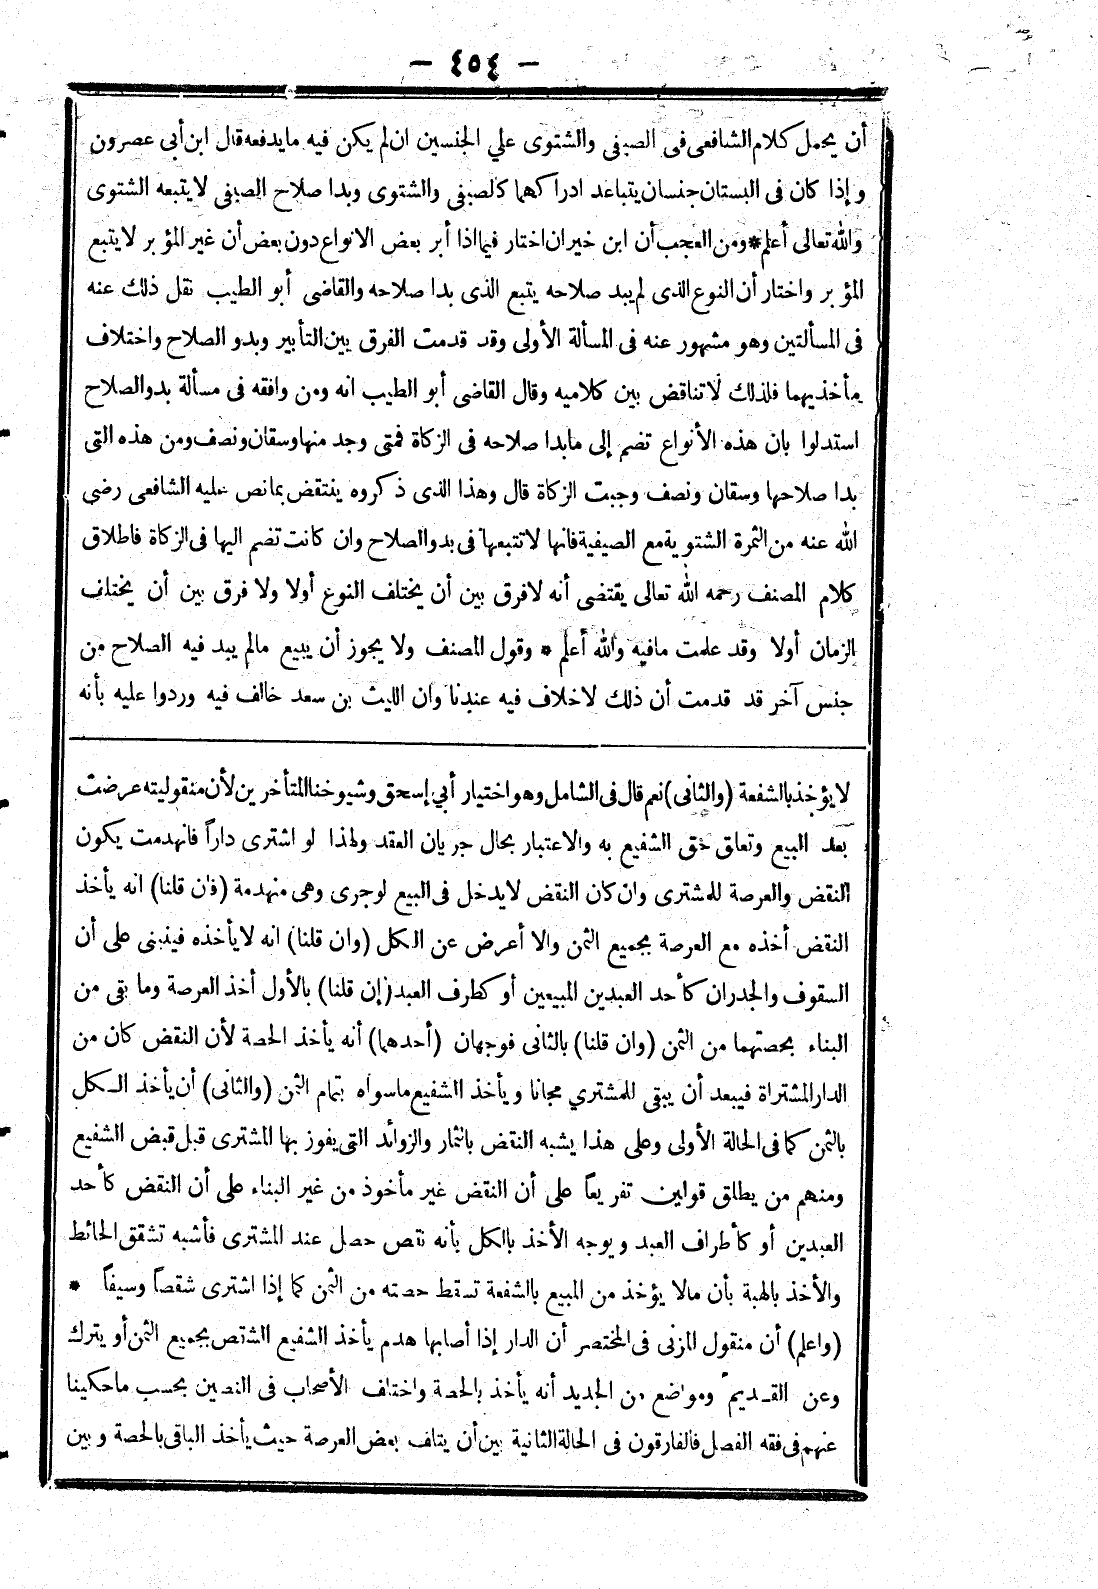 — ٤٥٤ —
أن يحمل كلام الشافعى فى الصيفى والشتوى علي الجنسين ان لم يكن فيه ما يدفعه قال ابن أبى عصرون
و إذا كان فى البستان جنسان يتباعد ادراكهما كالصيفى والشتوى وبدا صلاح الصيفى لا يتبعه الشتوى
والله تعالى أعلم * ومن العجب أن ابن خيران اختار فيما اذا أبر بعض الانواع دون بعض أن غير المؤبر لا يتبع
المؤبر واختار أن النوع الذى لم يبد صلاحه يتبع الذى بدا صلاحه والقاضى أبو الطيب نقل ذلك عنه
فى المسألتين وهو مشهور عنه فى المسألة الأولى وقد قدمت الفرق بين التأبير وبدو الصلاح واختلاف
مأخذيهما فلذلك لا تناقض بين كلاميه وقال القاضى أبو الطيب انه ومن وافقه فى مسألة بدو الصلاح
استدلوا بان هذه الأنواع تضم إلى ما بدا صلاحه فى الزكاة فمتى وجد منها وسقان ونصف ومن هذه التى
بدا صلاحها وسقان ونصف وجبت الزكاة قال وهذا الذى ذكروه ينتقض بما نص عليه الشافعى رضى
الله عنه من الثمرة الشتوية مع الصيفية فانها لا تتبعها فى بدو الصلاح وان كانت تضم اليها فى الزكاة فاطلاق
كلام المصنف رحمه الله تعالى يقتضى أنه لا فرق بين أن يختلف النوع أولا ولا فرق بين أن يختلف
الزمان أولا وقد علمت ما فيه والله أعلم * وقول المصنف ولا يجوز أن يبيع مالم يبد فيه الصلاح من
جنس آخر قد قدمت أن ذلك لا خلاف فيه عندنا وان الليث بن سعد خالف فيه وردوا عليه بأنه
لا يؤخذ بالشفعة (والثانى) نعم قال فى الشامل وهو اختيار أبي إسحق وشيوخنا المتأخرين لأن منقوليته عرضت
بعد البيع وتعلق حق الشفيع به والاعتبار بحال جريان العقد ولهذا لو اشترى داراً فانهدمت يكون
النقض والعرصة للمشترى وان كان النقض لا يدخل فى البيع لو جرى وهى منهدمة (فان قلنا) انه يأخذ
النقض أخذه مع العرصة بجميع الثمن والا أعرض عن الكل (وان قلنا) انه لا يأخذه فيبنى على أن
السقوف والجدران كأحد العبدين المبيعين أو كطرف العبد (إن قلنا) بالأول أخذ العرصة وما بقى من
البناء بحصتهما من الثمن (وان قلنا) بالثانى فوجهان (أحدهما) أنه يأخذ الحصة لأن النقض كان من
الدار المشتراة فيبعد أن يبقى للمشتري مجانا ويأخذ الشفيع ما سواه بتمام الثمن (والثانى) أن يأخذ الكل
بالثمن كما فى الحالة الأولى وعلى هذا يشبه النقض بالثمار والزوائد التى يفوز بها المشترى قبل قبض الشفيع
ومنهم من يطلق قولين تفريعاً على أن النقض غير مأخوذ من غير البناء على أن النقض كأحد
العبدين أو كأطراف العبد ويوجه الأخذ بالكل بأنه نقص حصل عند المشترى فأشبه تشقق الحائط
والأخذ بالهبة بأن مالا يؤخذ من المبيع بالشفعة تسقط حصته من الثمن كما إذا اشترى شقصاً وسيفاً *
(واعلم) أن منقول المزنى فى المختصر أن الدار إذا أصابها هدم يأخذ الشفيع الشقص بجميع الثمن أو يترك
وعن القديم ومواضع من الجديد أنه يأخذ بالحصة واختلف الأصحاب فى النصين بحسب ما حكينا
عنهم فى فقه الفصل فالفارقون فى الحالة الثانية بين أن يتلف بعض العرصة حيث يأخذ الباقى بالحصة وبين